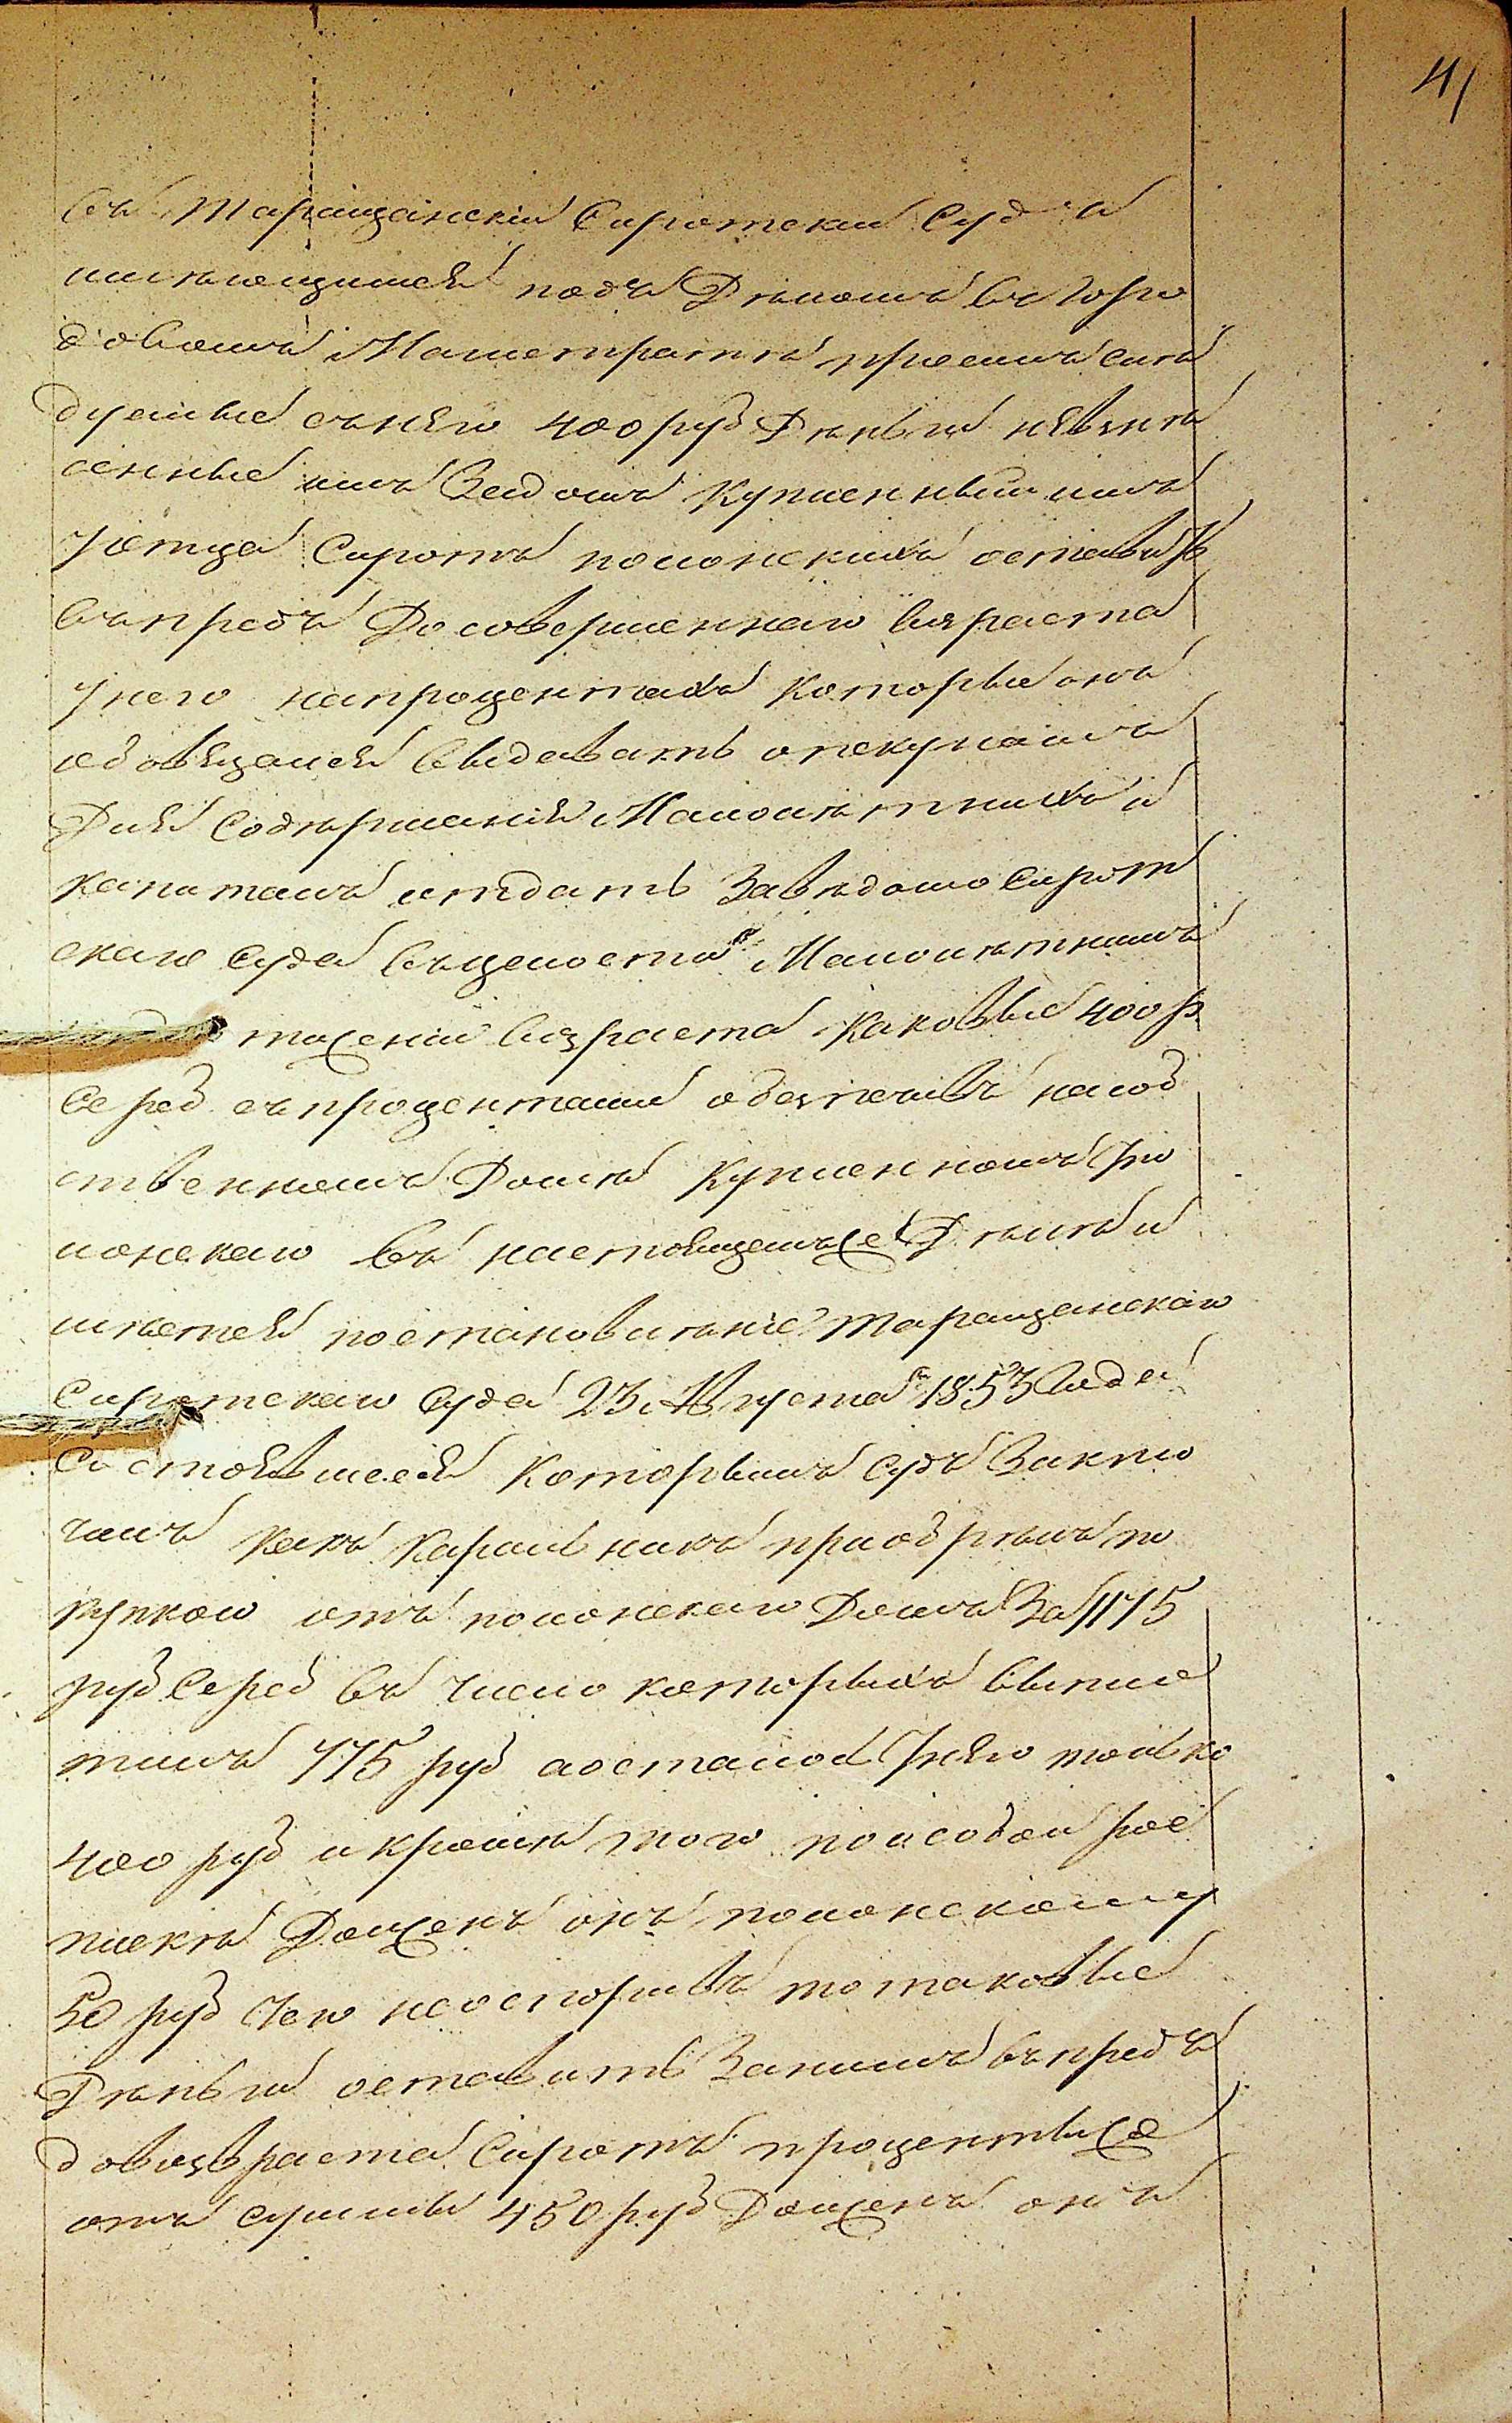 41
въ Таращанскій Сиротскій Судъ и
имѣющимся подъ Дѣломъ въ Горо
довомъ Магистратѣ приемлѣ слѣ
дуемые съ нѣго 400 руб Дѣньги нѣвзнѣ
сенные имъ Зедомъ купленный имъ
у отца Сиротъ полонскихъ оставить
въпредъ До совершеннаго взраста
у него напроцентахъ которые онъ
обовящался выдавать опекунамъ
Для Содѣржанія Малолѣтнихъ и
капиталъ отдать Завѣдомо Сирот
скаго Суда въцелости Малолѣтнимъ
тиженіи взраста каковые 400 р
Сереб съпроцентами обезпечивъ насоб
ственномъ Домѣ купленномъ у по
лонскаго въ настоящемъже Дѣлѣ и
имѣется постановлѣніе Таращанскаго
Сиротскаго Суда 23 Августа 1853 Года
Состоявшееся которымъ Судъ Заклю
чилъ какъ Каральникъ приобрѣлъ по
купкою отъ полонскаго Домъ За 1175
руб Сереб въ число которыхъ выпла
тилъ 775 руб аосталось у нѣго только
400 руб и кромѣ того поособой рос
пискѣ Долженъ онъ полонскому
50 руб чего неоспоривъ то таковые
Дѣньги оставить Занимъ въпредъ
довозвраста Сиротъ процентыже
отъ суммы 450 руб Долженъ онъ